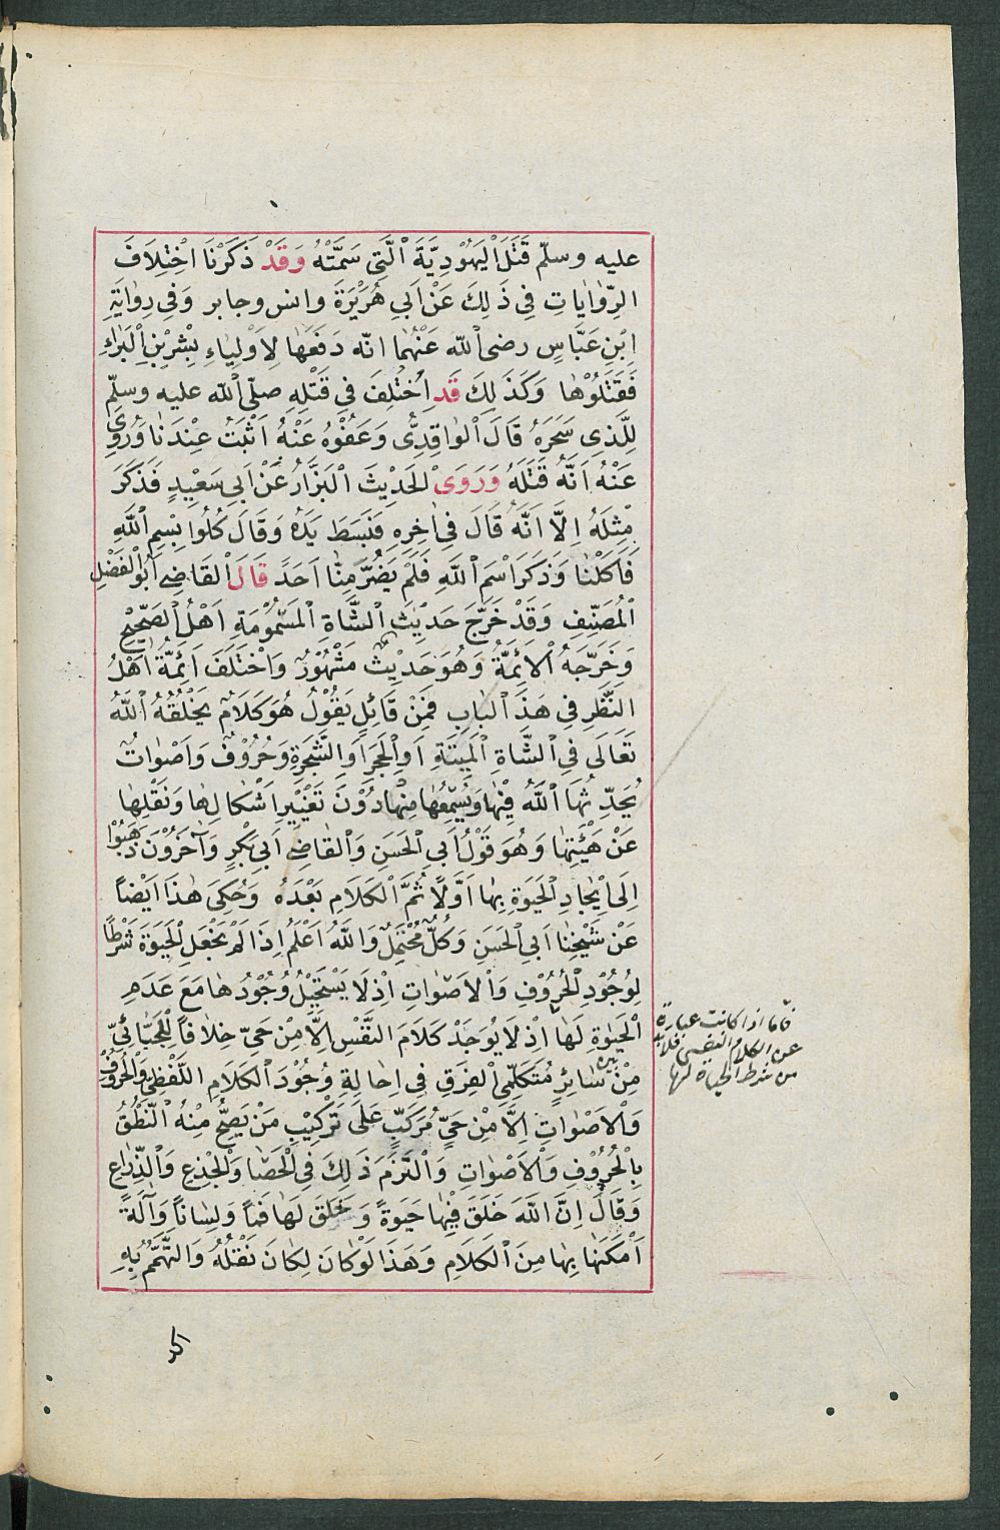 عليه وسلّم قَتَلَ الْيَهُودِيَّةَ الَّتِي سَمَّتْهُ وَقَدْ ذَكَرْنَا اخْتِلَافَ
الرِّوَايَاتِ فِي ذَلِكَ عَنْ اَبِي هُرَيْرَةَ وانس وجابر وَفِي رِوَايَةِ
اِبْنِ عَبَّاسٍ رضى الله عَنْهُمَا انّه دَفَعَهَا لِاَوْلِيَاءِ بِشْرِ بْنِ الْبَرَاءِ
فَقَتَلُوْهَا وَكَذَلِكَ قَد اُخْتُلِفَ فِي قَتْلِهِ صلّى الله عليه وسلّم
لِلَّذِي سَحَرَهُ قَالَ الْوَاقِدِىُّ وَعَفْوُهُ عَنْهُ اَثْبَتُ عِنْدَنَا وَرُوِىَ
عَنْهُ اَنَّهُ قَتَلَهُ وَرَوَى الْحَدِيْثَ الْبَزَّارُ عَنْ اَبِي سَعِيْدٍ فَذَكَرَ
مِثْلَهُ اِلَّا اَنَّهُ قَالَ فِي اٰخِرِهِ فَبَسَطَ يَدَهُ وَقَالَ كُلُوا بِسْمِ اللهِ
فَاَكَلْنَا وَذَكَرَ اسْمَ اللهِ فَلَمْ يَضُرَّ مِنَّا اَحَدً قَالَ الْقَاضِي اَبُو الْفَضْلِ
الْمُصَنِّفِ وَقَدْ خَرَّجَ حَدِيْثَ الشَّاةِ الْمَسْمُوْمَةِ اَهْلُ الصَّحِيْحِ
وَخَرَّجَهُ الْاَئِمَّةُ وَهُوَ حَدِيْثٌ مَشْهُوْرٌ وَاخْتَلَفَ اَئِمَّةُ اَهْلُ
النَّظَرِ فِي هَذَ الْبَابِ فَمِنْ قَائِلٍ يَقُوْلُ هُوَ كَلَامٌ يَخْلُقُهُ اللهُ
تَعَالَى فِي الشَّاةِ الْمَيِّتَةِ اَوِ الْحَجَرِ اَوِ الشَّجَرَةِ وَحُرُوْفٌ وَاَصْوَاتٌ
يُحَدِّثُهَا اللهُ فِيْهَا وَيُسَمِّعُهَا مِنْهَا دُوْنَ تَغْيِيْرِ اَشْكَالِهَا وَنَقْلِهَا
عَنْ هَيْئَتِهَا وَهُوَ قَوْلُ اَبِي الْحَسَنِ وَالْقَاضِي اَبِي بَكْرٍ وَآخَرُوْنَ ذَهَبُوْا
اِلَى اِيْجَادِ الْحَيَوةِ بِهَا اَوَّلًا ثُمَّ الْكَلَامِ بَعْدَهُ وَحُكِيَ هٰذَا اَيْضاً
عَنْ شَيْخِنَا اَبِي الْحَسَنِ وَكُلٌّ مُحْتَمِلٌ وَاللهُ اَعْلَمُ اِذَا لَمْ يَجْعَلِ الْحَيَوةَ شَرْطًا
لِوُجُوْدِ الْحُرُوْفِ وَالْاَصْوَاتِ اِذْ لَا يَسْتَحِيْلُ وُجُوْدُهَا مَعَ عَدَمِ
الْحَيٰوةِ لَهَا اِذْ لَا يُوجَدُ كَلَامَ النَّفْسِ اِلَّا مِنْ حَيّ خِلَافاً لِلْجُبَّائِيِّ
مِنْ بَيْنِ سَائِرِ مُتَكَلِّمِي الْفِرَقِ فِي اِحَالَةِ وُجُوْدَ الْكَلَامِ اللَّفْظِيِّ وَالْحُرُوْفِ
وَالْاَصْوَاتِ اِلَّا مِنْ حَيٍّ مُرَكَّبٍ عَلَى تَرْكِيْبِ مَنْ يَصِحُّ مِنْهُ النُّطْقُ
بِالْحُرُوْفِ وَالْاَصْوَاتِ وَالْتَزَمَ ذَلِكَ فِي الْحَصَا وَالْجِذْعِ وَالذِّرَاعِ
وَقَالَ اِنَّ اللهَ خَلَقَ فِيْهَا حَيَوةً وَخَلَقَ لَهَا فَمًا وَلِسَاناً وَآلَةً
اَمْكَنَهَا بِهَا مِنَ الْكَلَامِ وَهَذَا لَوْ كَانَ لَكَانَ نَقْلُهُ وَالتَّهَمُّمُ بِهِ
فامّا اذا كانت عبارة
عن الكلام النفسى فلا بدّ
من شرط الحياة لها